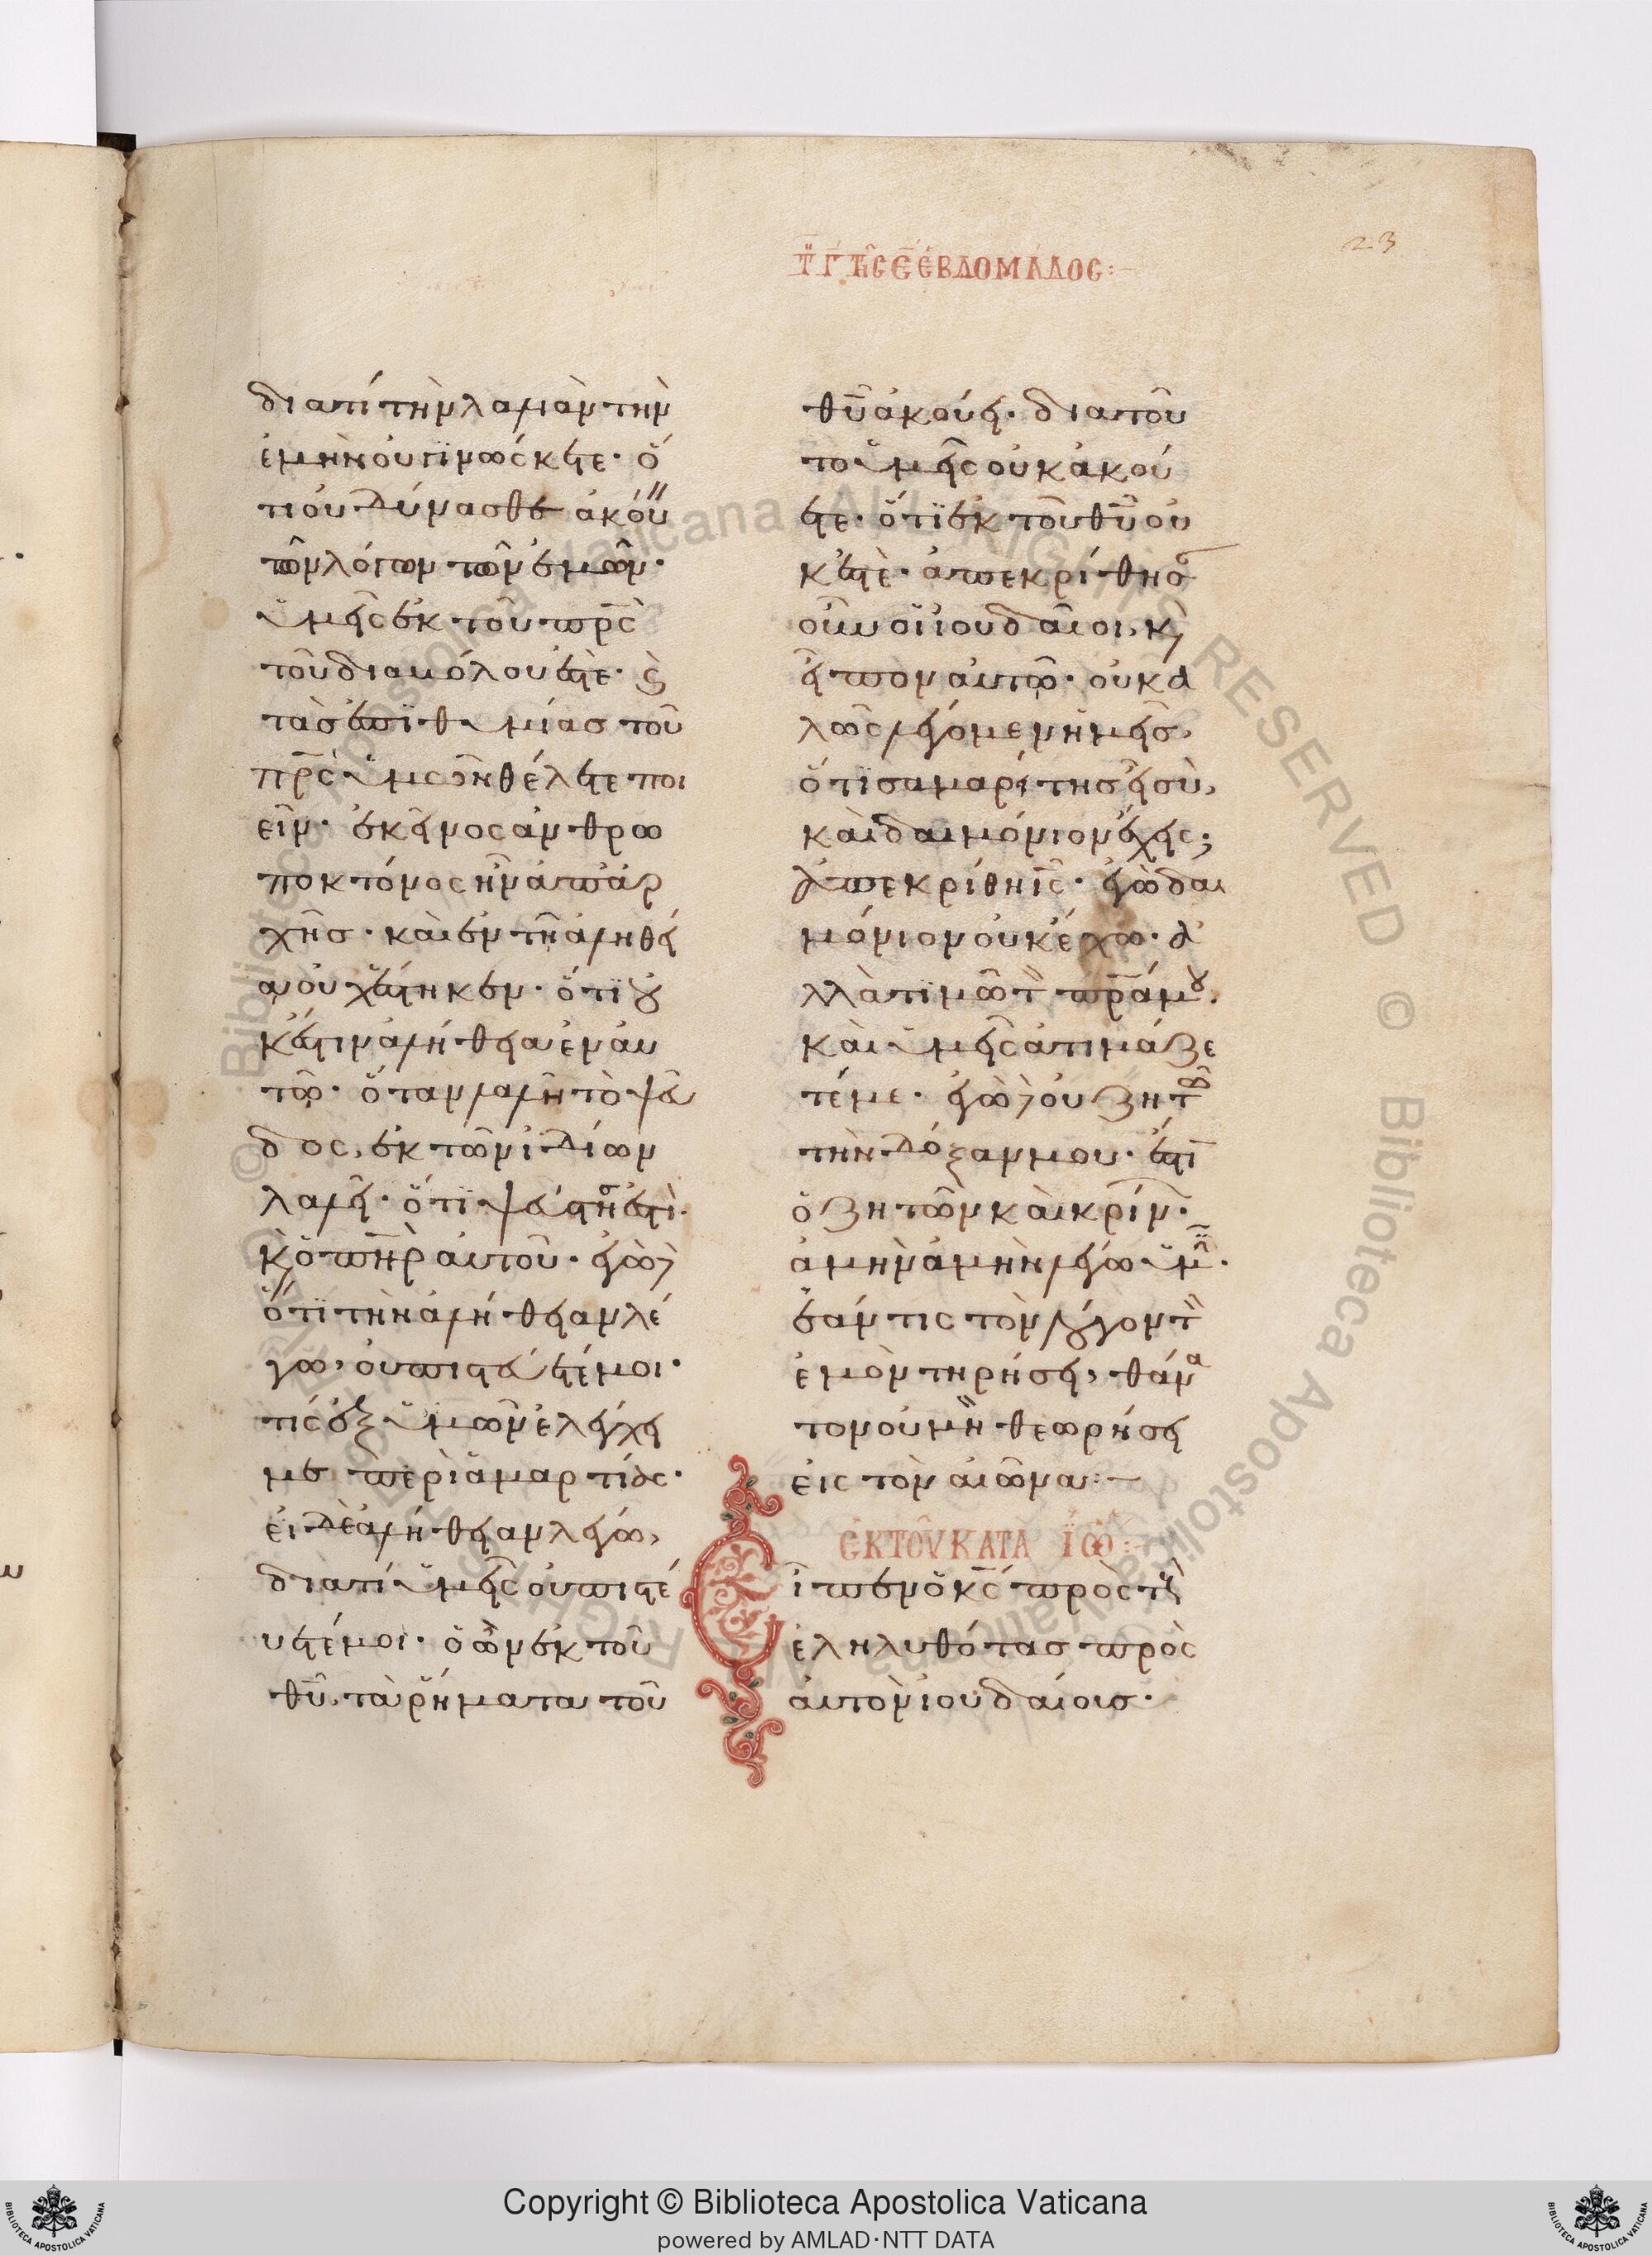 23
τῇ γ̅ τῆς ε̅ ἑβδομάδος:—
διατί τὴν λαλιὰν τὴν
ἐμὴν οὐ γινώσκετε· ὅ
τι οὐ δύνασθε ἀκούειν
τῶν λόγων τῶν ἐμῶν·
ὑμεῖς ἐκ τοῦ πρ̅ς
τοῦ διαβόλου ἐστὲ· κ̀
τὰς ἐπιθυμίας τοῦ
πρ̅ς ὑμῶν θέλετε ποι
εῖν· ἐκεῖνος ἀνθρω
ποκτόνος ἦν ἀπαρ
χῆς· καὶ ἐν τῆ ἀληθεί
α οὐχ ἕστηκεν· ὅτι οὐ
κ ἔστιν ἀλήθεια ἐν αυ
τῶ· ὅταν λαλῆ τὸ ψεῦ
δος, ἐκ τῶν ἰδίων
λαλεῖ· ὅτι ψεύστης ἐστὶ·
κ̀ ὁ πη̅ρ αὐτοῦ· ἐγὼ δὲ
ὅτι τὴν ἀλήθειαν λέ
γω, οὐ πιστεύετέ μοι·
τίς ἐξ ὑμῶν ἐλέγχει
με περὶ ἁμαρτίας·
εἰ δὲ ἀλήθειαν λέγω,
διατί ὑμεῖς οὐ πιστέ
υετέ μοι· ὁ ὢν ἐκ τοῦ
θυ̅, τὰ ῥήματα τοῦ
θυ̅ ἀκούει· διατοῦ
το ὑμεῖς οὐκ ἀκού
ετε· ὅτι ἐκ τοῦ θυ̅ οὐ
κ ἐστὲ· ἀπεκρίθησ
οὖν οἱ ἰουδαῖοι, κ̀
εἶπον αὐτῶ· οὐ κα
λῶς λέγομεν ἡμεῖς,
ὅτι σαμαρίτης εἶ σὺ,
καὶ δαιμόνιον ἔχεις;
ἀπεκρίθη ις̅· ἐγὼ δαι
μόνιον οὐκ ἔχω· ἀ
λλὰ τιμῶ τὸν πρ̅α μου·
καὶ ὑμεῖς ἀτιμάζε
τέ με· ἐγὼ δὲ οὐ ζητῶ
τὴν δόξαν μου· ἔστι
ὁ ζητῶν καὶ κρίν·
ἀμὴν ἀμὴν λέγω ὑμῖν·
ἐάν τις τὸν λόγον τὸν
ἐμὸν τηρήσει, θάνα
τον οὐ μὴ θεωρήσει
εἰς τὸν αἰῶνα:—
ἐκ τοῦ κατὰ ἰω:—
Εἶπεν ὁ κς̅ πρὸς τοὺς
ἐληλυθότας πρὸς
αὐτὸν ἰουδαίους·
© Biblioteca Apostolica Vaticana ALL RIGHTS RESERVED
Copyright © Biblioteca Apostolica Vaticana
powered by AMLAD·NTT DATA
BIBLIOTECA APOSTOLICA VATICANA
BIBLIOTECA APOSTOLICA VATICANA